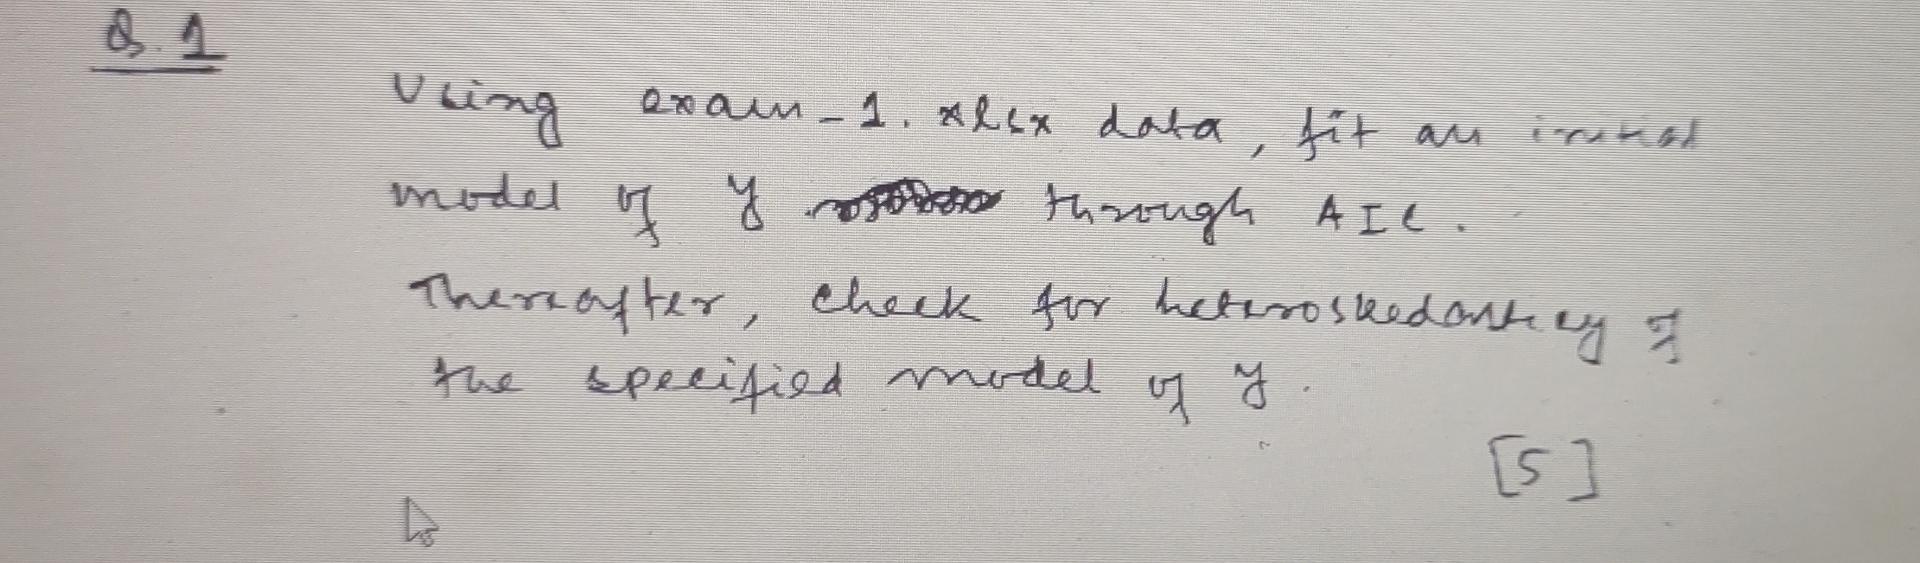 Q. 1
Using exam-1.xlsx data, fit an initial
model of y through AIC.
Thereafter, check for heteroskedasticity of
the specified model of y.
[5]